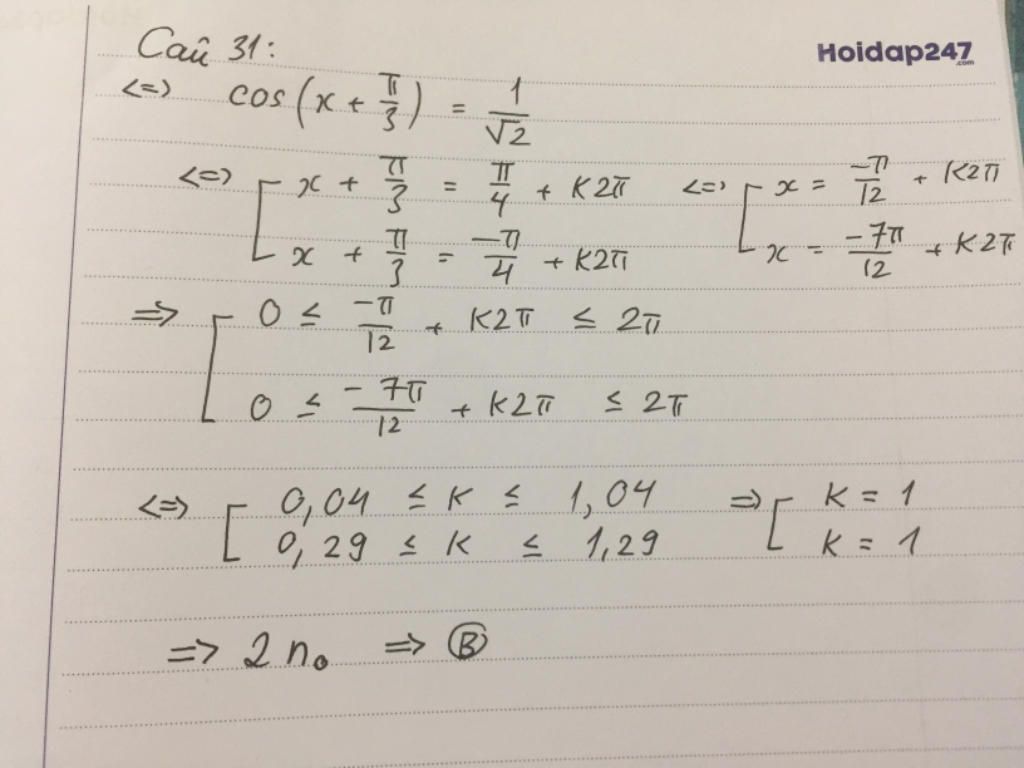 Câu 31:
Hoidap247.com
<=> cos(x + π/3) = 1/√2
<=> [ x + π/3 = π/4 + K2π <=> [ x = -π/12 + K2π
x + π/3 = -π/4 + K2π x = -7π/12 + K2π
=> [ 0 ≤ -π/12 + K2π ≤ 2π
0 ≤ -7π/12 + K2π ≤ 2π
<=> [ 0,04 ≤ K ≤ 1,04 => [ K = 1
0,29 ≤ K ≤ 1,29 K = 1
=> 2 no => Ⓑ